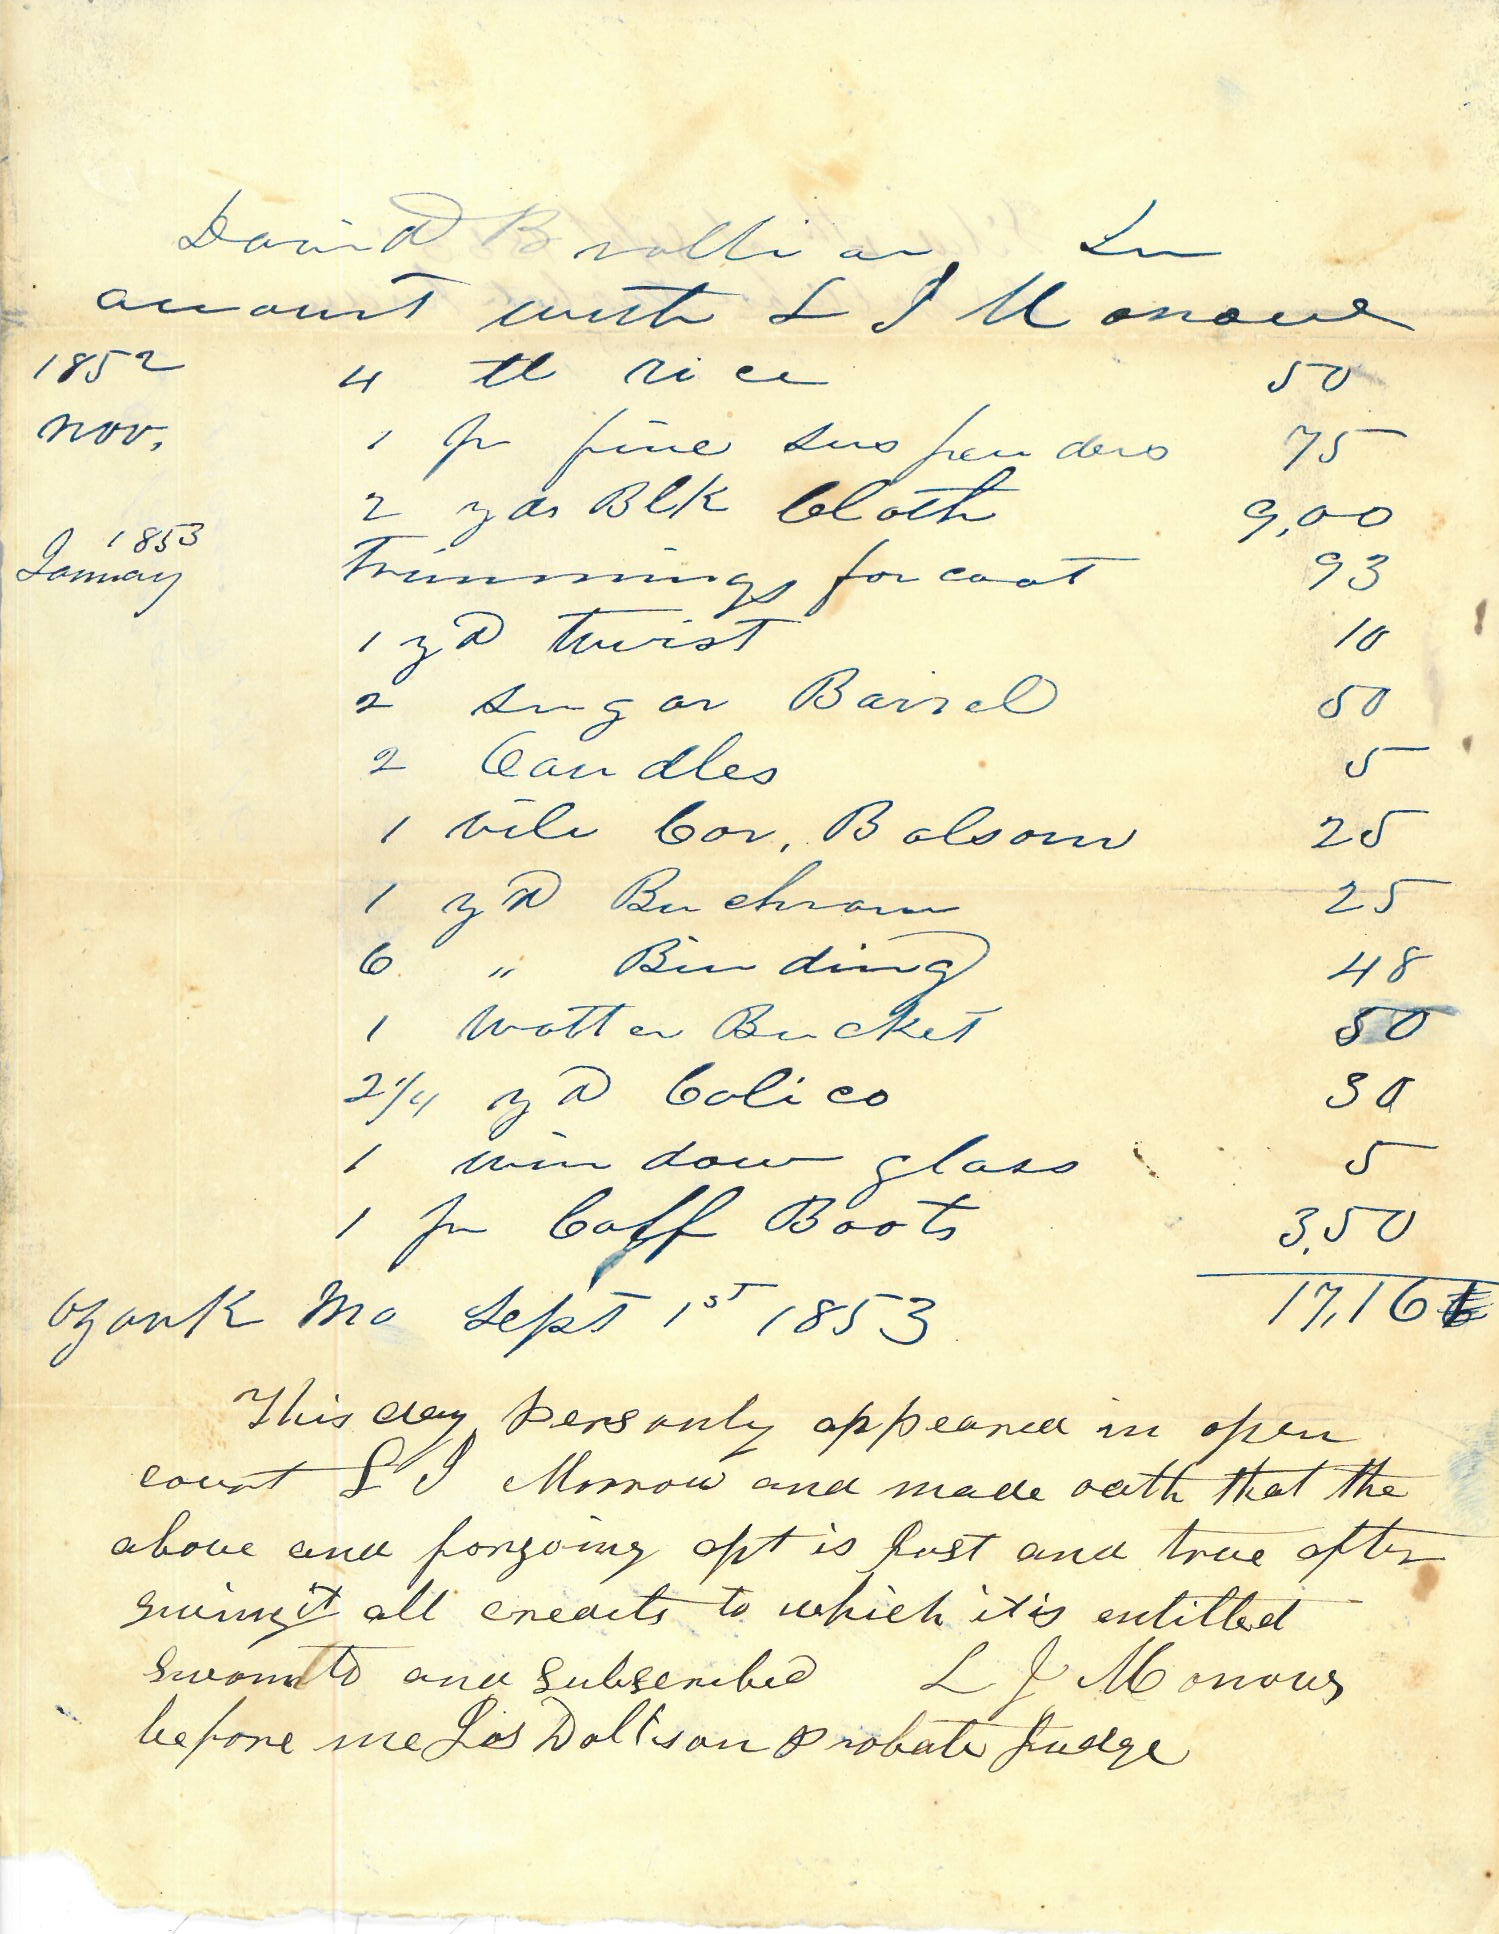 David B rolli an In
account with L J Morrow
1852 4 lb rice 50
Nov, 1 pr fine suspenders 75
2 yds Blk Cloth 9,00
1853
January Trimmings for coat 93
1 yd twist 10
2 sugar Barrel 50
2 Candles 5
1 vile Cor, Balsom 25
1 yd Buchram 25
6 " Binding 48
1 Watter Bucket 50
2 1/4 yd Calico 30
1 window glass 5
1 pr Calf Boots 3,50
Ozark Mo Sept 1st 1853 17,16
This day personly appeared in open
court L J Morrow and made oath that the
above and forgoing apt is just and true after
giving it all credits to which it is entitled
sworn to and subscribed L J Morrow
before me Jos Dollison Probate Judge